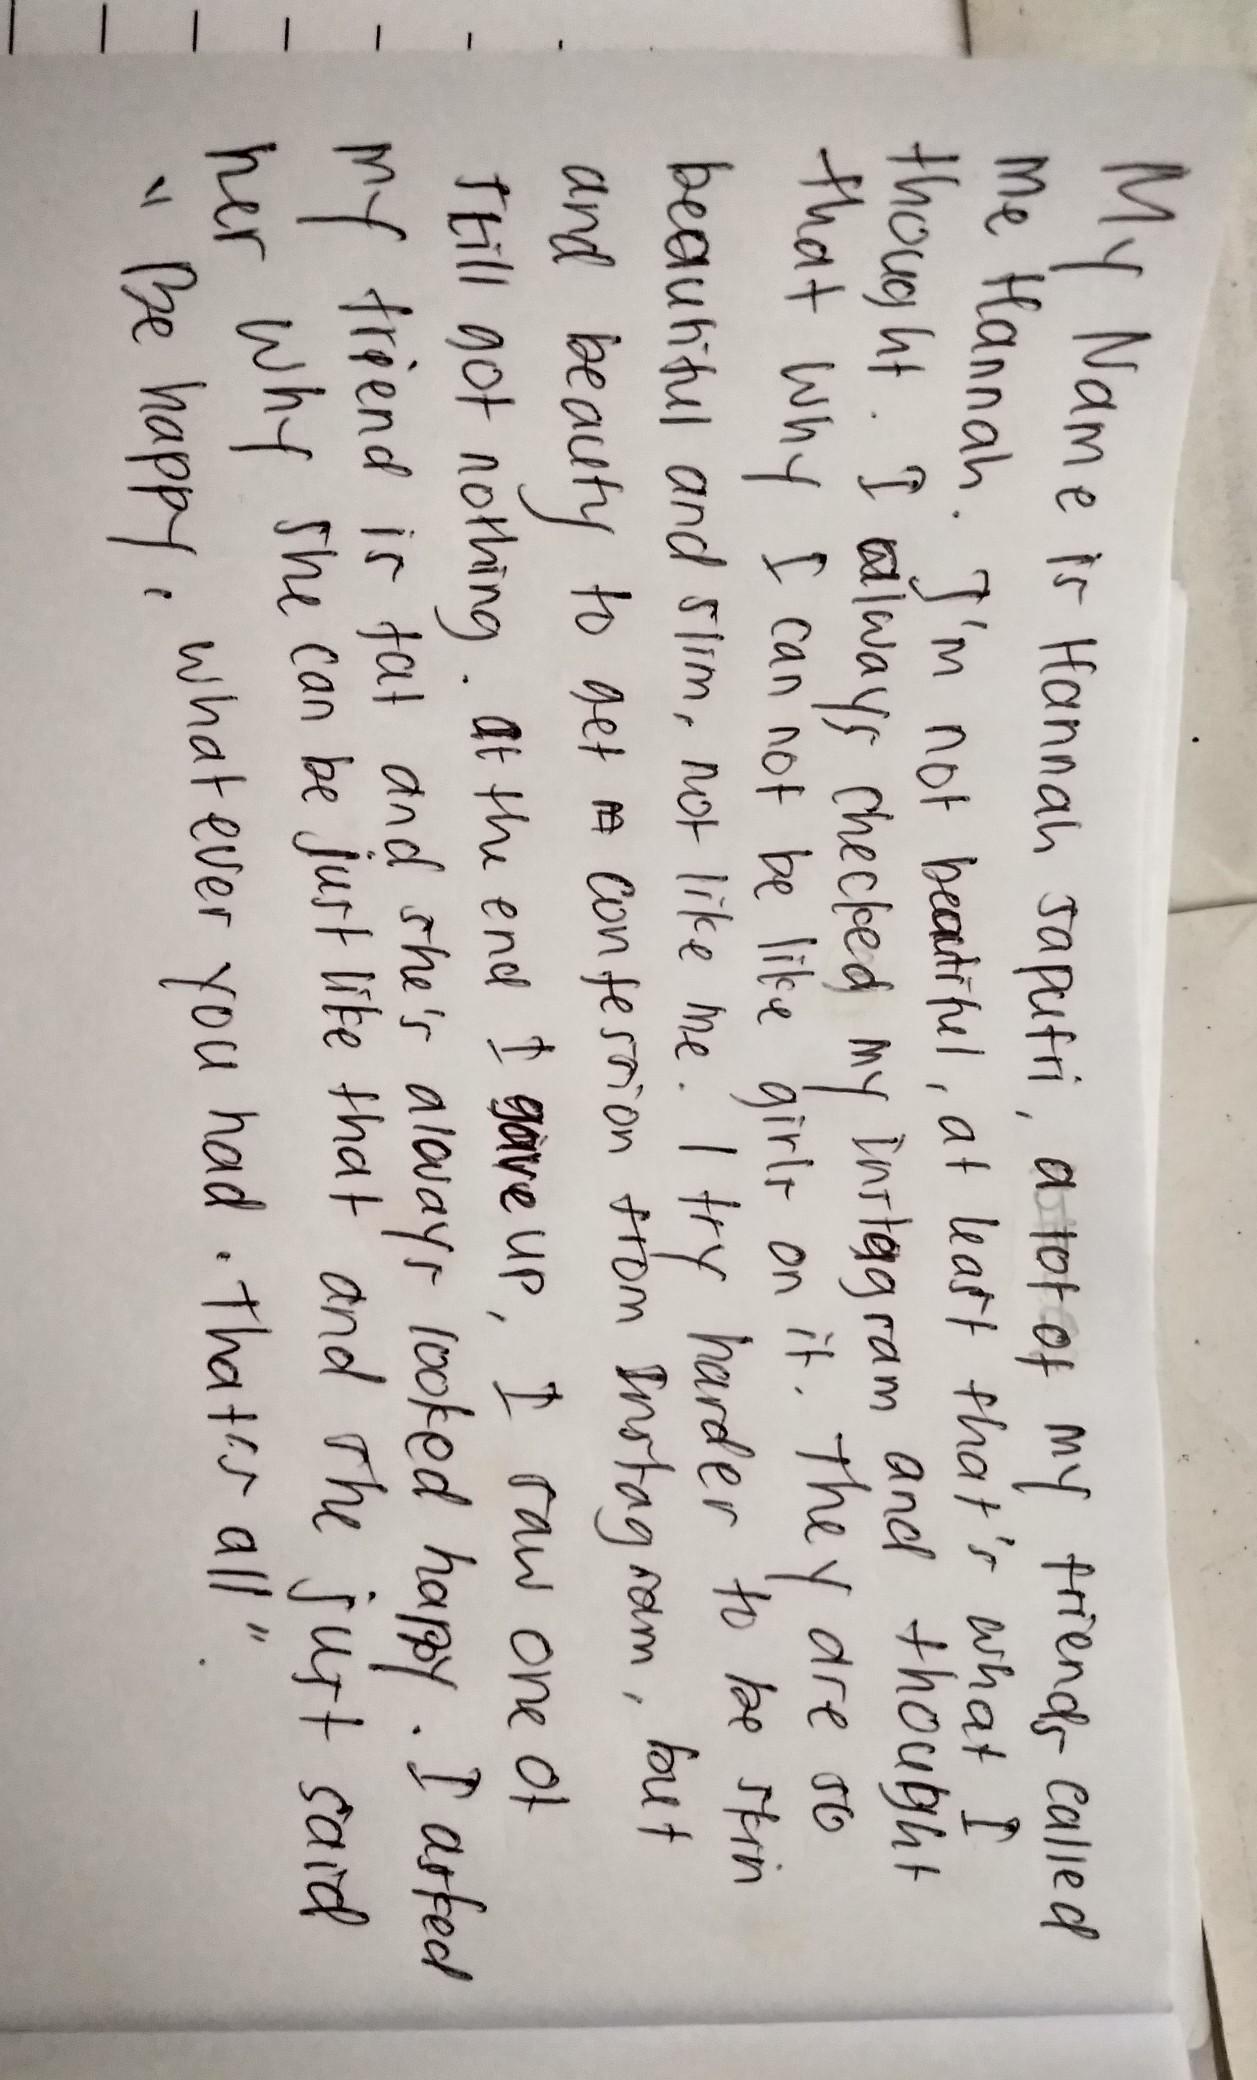 My Name is Hannah saputri, a lot of my friends called
me Hannah. I'm not beautiful, at least that's what I
thought. I always checked my instagram and thought
that why I can not be like girls on it. They are so
beautiful and slim, not like me. I try harder to be skin
and beauty to get a confession from Instagram, but
still got nothing. at the end I gave up, I saw one of
my friend is fat and she's always looked happy. I asked
her why she can be just like that and she just said
"Be happy, whatever you had. that's all".